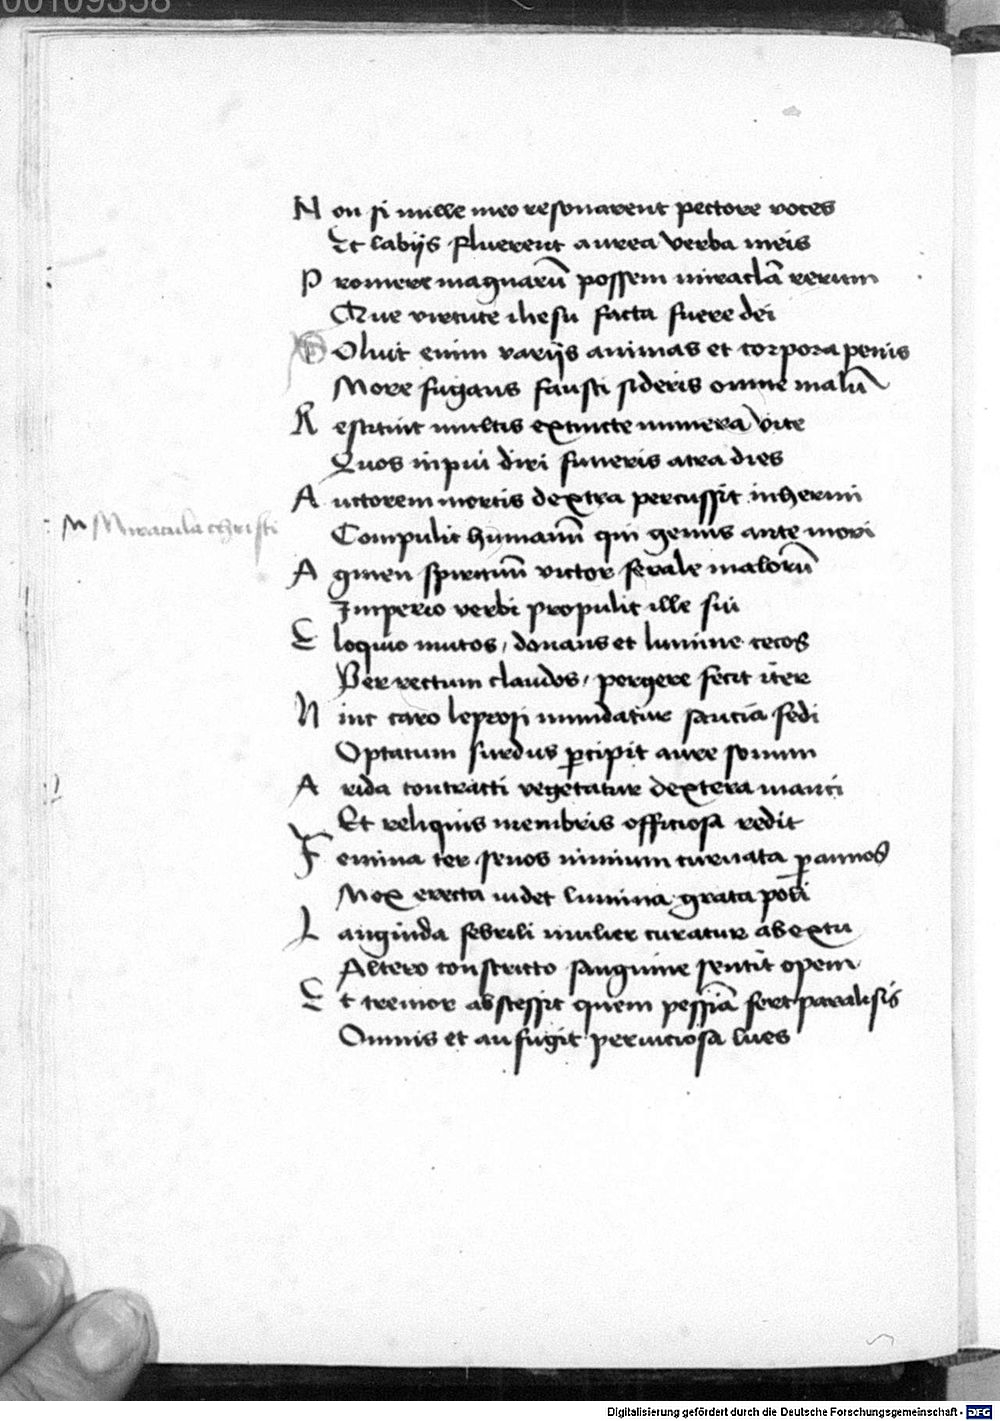 00109358
Non si mille meo resonarent pectore voces
Et labijs fluerent aurea verba meis
Promere magnarū possem miraclā rerum
Que virtute ihesu facta fuere dei
Soluit enim varijs animas et corpora penis
More fugans fausti sideris omne malū
Restituit multis extincte munera vite
Quos inpui diri funeris atra dies
Auctorem mortis dextra percussit inhermi
Compulit humanū qui genus ante mori
Agmen spirituū victor ferale malorū
Imperio verbi propulit ille sui
Eloquio mutos, donans et lumine cecos
Per rectum claudos, pergere fecit iter
: M Miracula christi
Hinc caro leprosi mundatur saucia fedi
Optatum surdus ꝑcipit aure sonum
Arida contracti vegetatur dextera manci
Et reliquis membris officiosa redit
Femina ter senos nimium curuata ꝑ annos
Mox erecta videt lumina grata poli
Languida febrili mulier curatur ab extu
Altero constricto sanguine sentit opem
Et tremor abscessit quem pessiā fert paralisis
Omnis et aufugit perniciosa lues
Digitalisierung gefördert durch die Deutsche Forschungsgemeinschaft - DFG